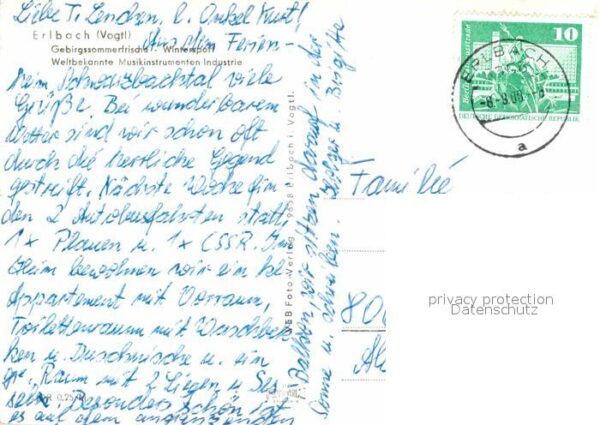 Liebe T. Lenchen, l. Onkel Kurt!
Erlbach (Vogtl)
Gebirgssommerfrische - Wintersport
Weltbekannte Musikinstrumenten Industrie
Aus dem Ferien-
heim Schwarzbachtal viele
Grüße. Bei wunderbarem
Wetter sind wir schon oft
durch die herrliche Gegend
gestreift. Nächste Woche fin
den 2 Autobusfahrten statt,
1x Plauen u. 1x CSSR. Im
Heim bewohnen wir ein kl.
Appartement mit Vorraum,
Toilettenraum mit Waschbek
ken u. Duschnische u. ein
gr. Raum mit 2 Liegen u. Ses
seln. Besonders schön ist
es auf dem angrenzenden
Balkon, wir sitzen darauf in der
Sonne u. schreiben.
Holger u. Birgitte
VEB Foto-Verlag 9658 Erlbach i. Vogtl.
0,25
10
DEUTSCHE DEMOKRATISCHE REPUBLIK
ERLBACH
a
Familie
80
privacy protection
Datenschutz